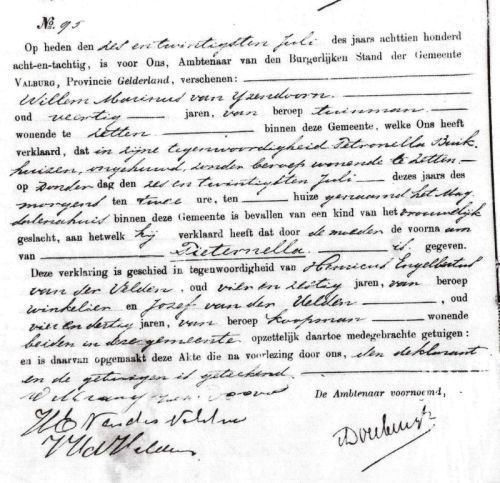 No. 95
Op heden den zes en twintigsten Juli des jaars achttien honderd
acht-en-tachtig, is voor Ons, Ambtenaar van den Burgerlijken Stand der Gemeente
VALBURG, Provincie Gelderland, verschenen:
Willem Marinus van Yzendoorn.
oud veertig jaren, van beroep tuinman
wonende te Zetten binnen deze Gemeente, welke Ons heeft
verklaard, dat in zijne tegenwoordigheid Petronella Buik
huizen, ongehuwd, zonder beroep wonende te Zetten
op Donderdag den zes en twintigsten Juli dezes jaars des
morgens ten twee ure, ten huize genaamd het Mag
dalenahuis binnen deze Gemeente is bevallen van een kind van het vrouwelijk
geslacht, aan hetwelk hij verklaard heeft dat door de moeder de voornaam
van Pieternella is gegeven.
Deze verklaring is geschied in tegenwoordigheid van Henricus Engelbertus
van der Velden, oud vier en zestig jaren, van beroep
winkelier en Josef van der Velden, oud
vier en dertig jaren, van beroep koopman wonende
beiden in deze gemeente opzettelijk daartoe medegebrachte getuigen:
en is daarvan opgemaakt deze Akte die na voorlezing door ons, den deklarant
en de getuigen is geteekend.
De Ambtenaar voornoemd,
HE van der Velden